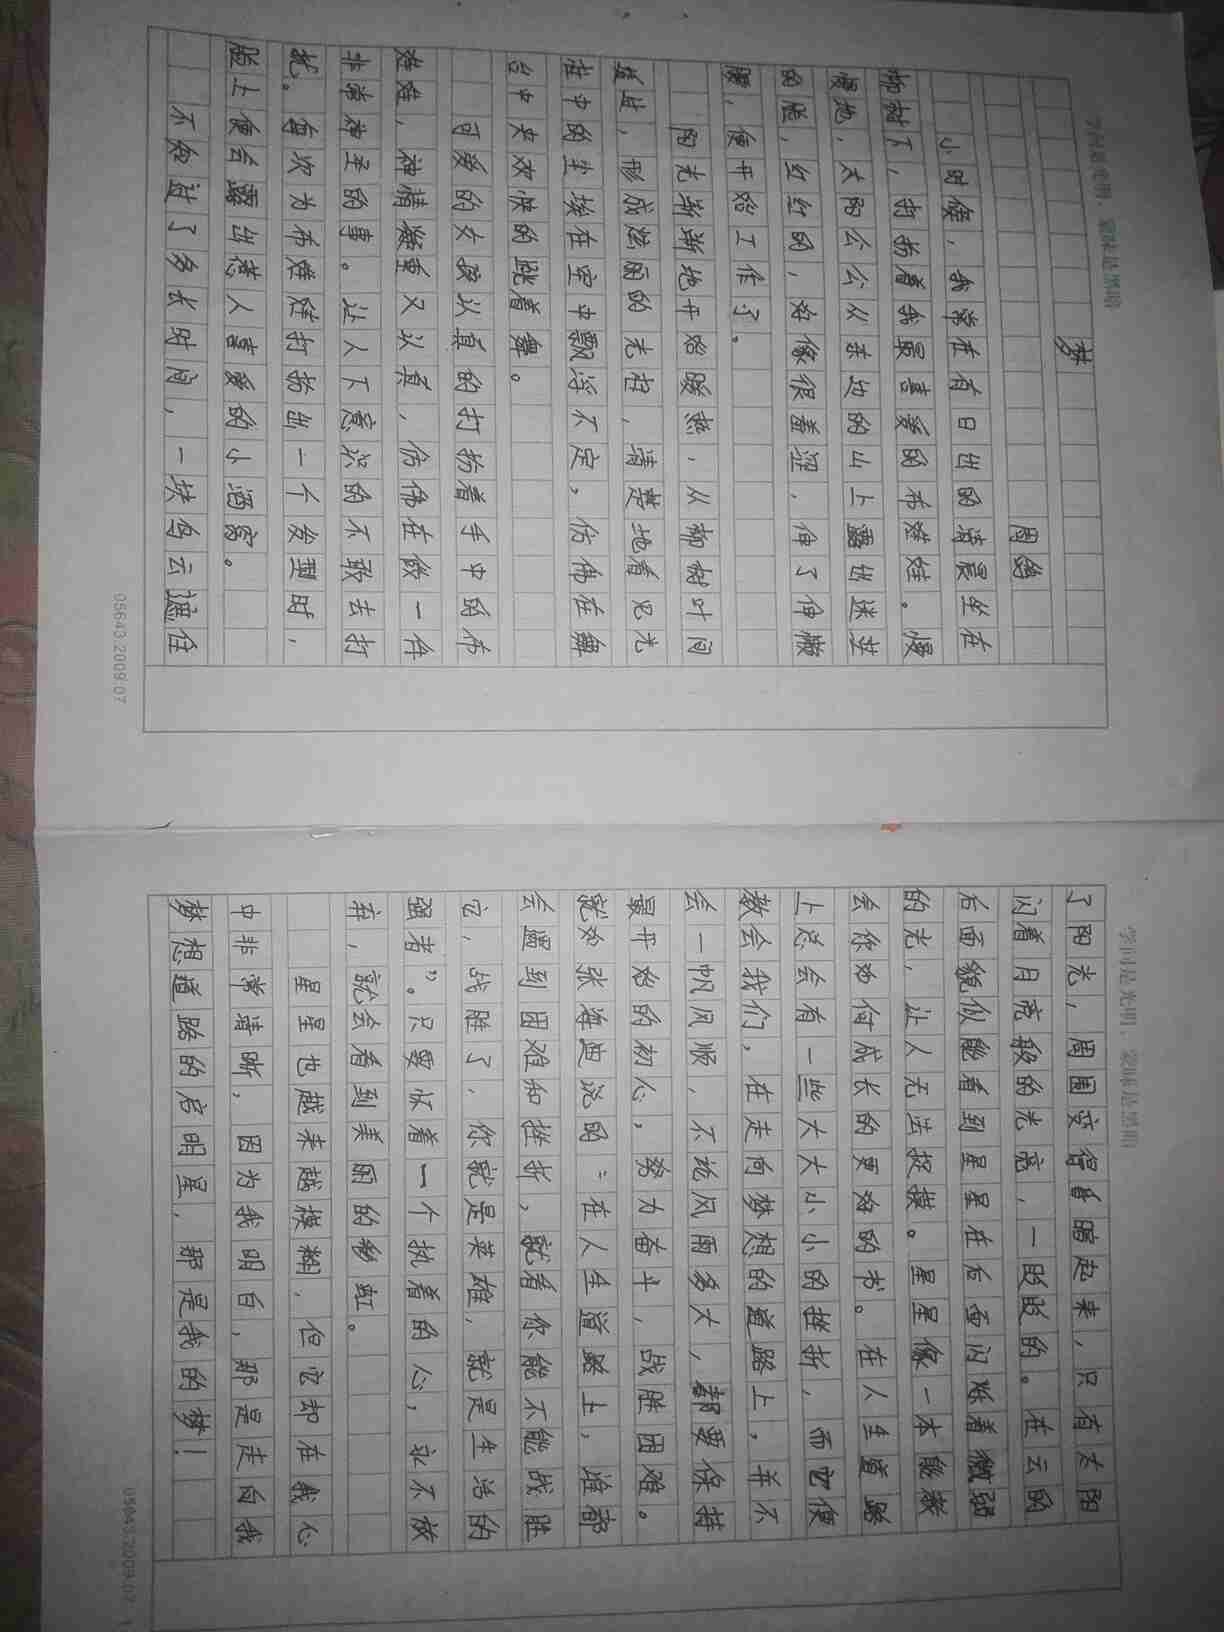 学问是光明，蒙昧是黑暗
梦
周绮
小时候，我常在有日出的清晨坐在
柳树下，打扮着我最喜爱的布娃娃。慢
慢地，太阳公公从东边的山上露出迷茫
的脸，红红的，好像很羞涩，伸了伸懒
腰，便开始工作了。
阳光渐渐地开始暖热，从柳树叶间
益过，形成炫丽的光柱，清楚地看见光
柱中的尘埃在空中飘浮不定，仿佛在舞
台中央欢快的跳着舞。
可爱的女孩认真的打扮着手中的布
娃娃，神情凝重又认真，仿佛在做一件
非常神圣的事。让人下意识的不敢去打
扰。每次为布娃娃打扮出一个发型时，
脸上便会露出惹人喜爱的小酒窝。
不知过了多长时间，一块乌云遮住
05643.2009.07
学问是光明，蒙昧是黑暗
了阳光，周围变得昏暗起来，只有太阳
闪着月亮般的光亮，一眨眨的。在云的
后面貌似能看到星星在后面闪烁着微弱
的光，让人无法捉摸。星星像一本能教
会你如何成长的更好的书。在人生道路
上总会有一些大大小小的挫折，而它便
教会我们，在走向梦想的道路上，并不
会一帆风顺，不论风雨多大，都要保持
最开始的初心，努力奋斗，战胜困难。
就如张海迪说的：“在人生道路上，谁都
会遇到困难和挫折，就看你能不能战胜
它，战胜了，你就是英雄，就是生活的
强者”。只要怀着一个执着的心，永不放
弃，就会看到美丽的彩虹。
星星也越来越模糊，但它却在我心
中非常清晰，因为我明白，那是走向我
梦想道路的启明星，那是我的梦！
05643.2009.07